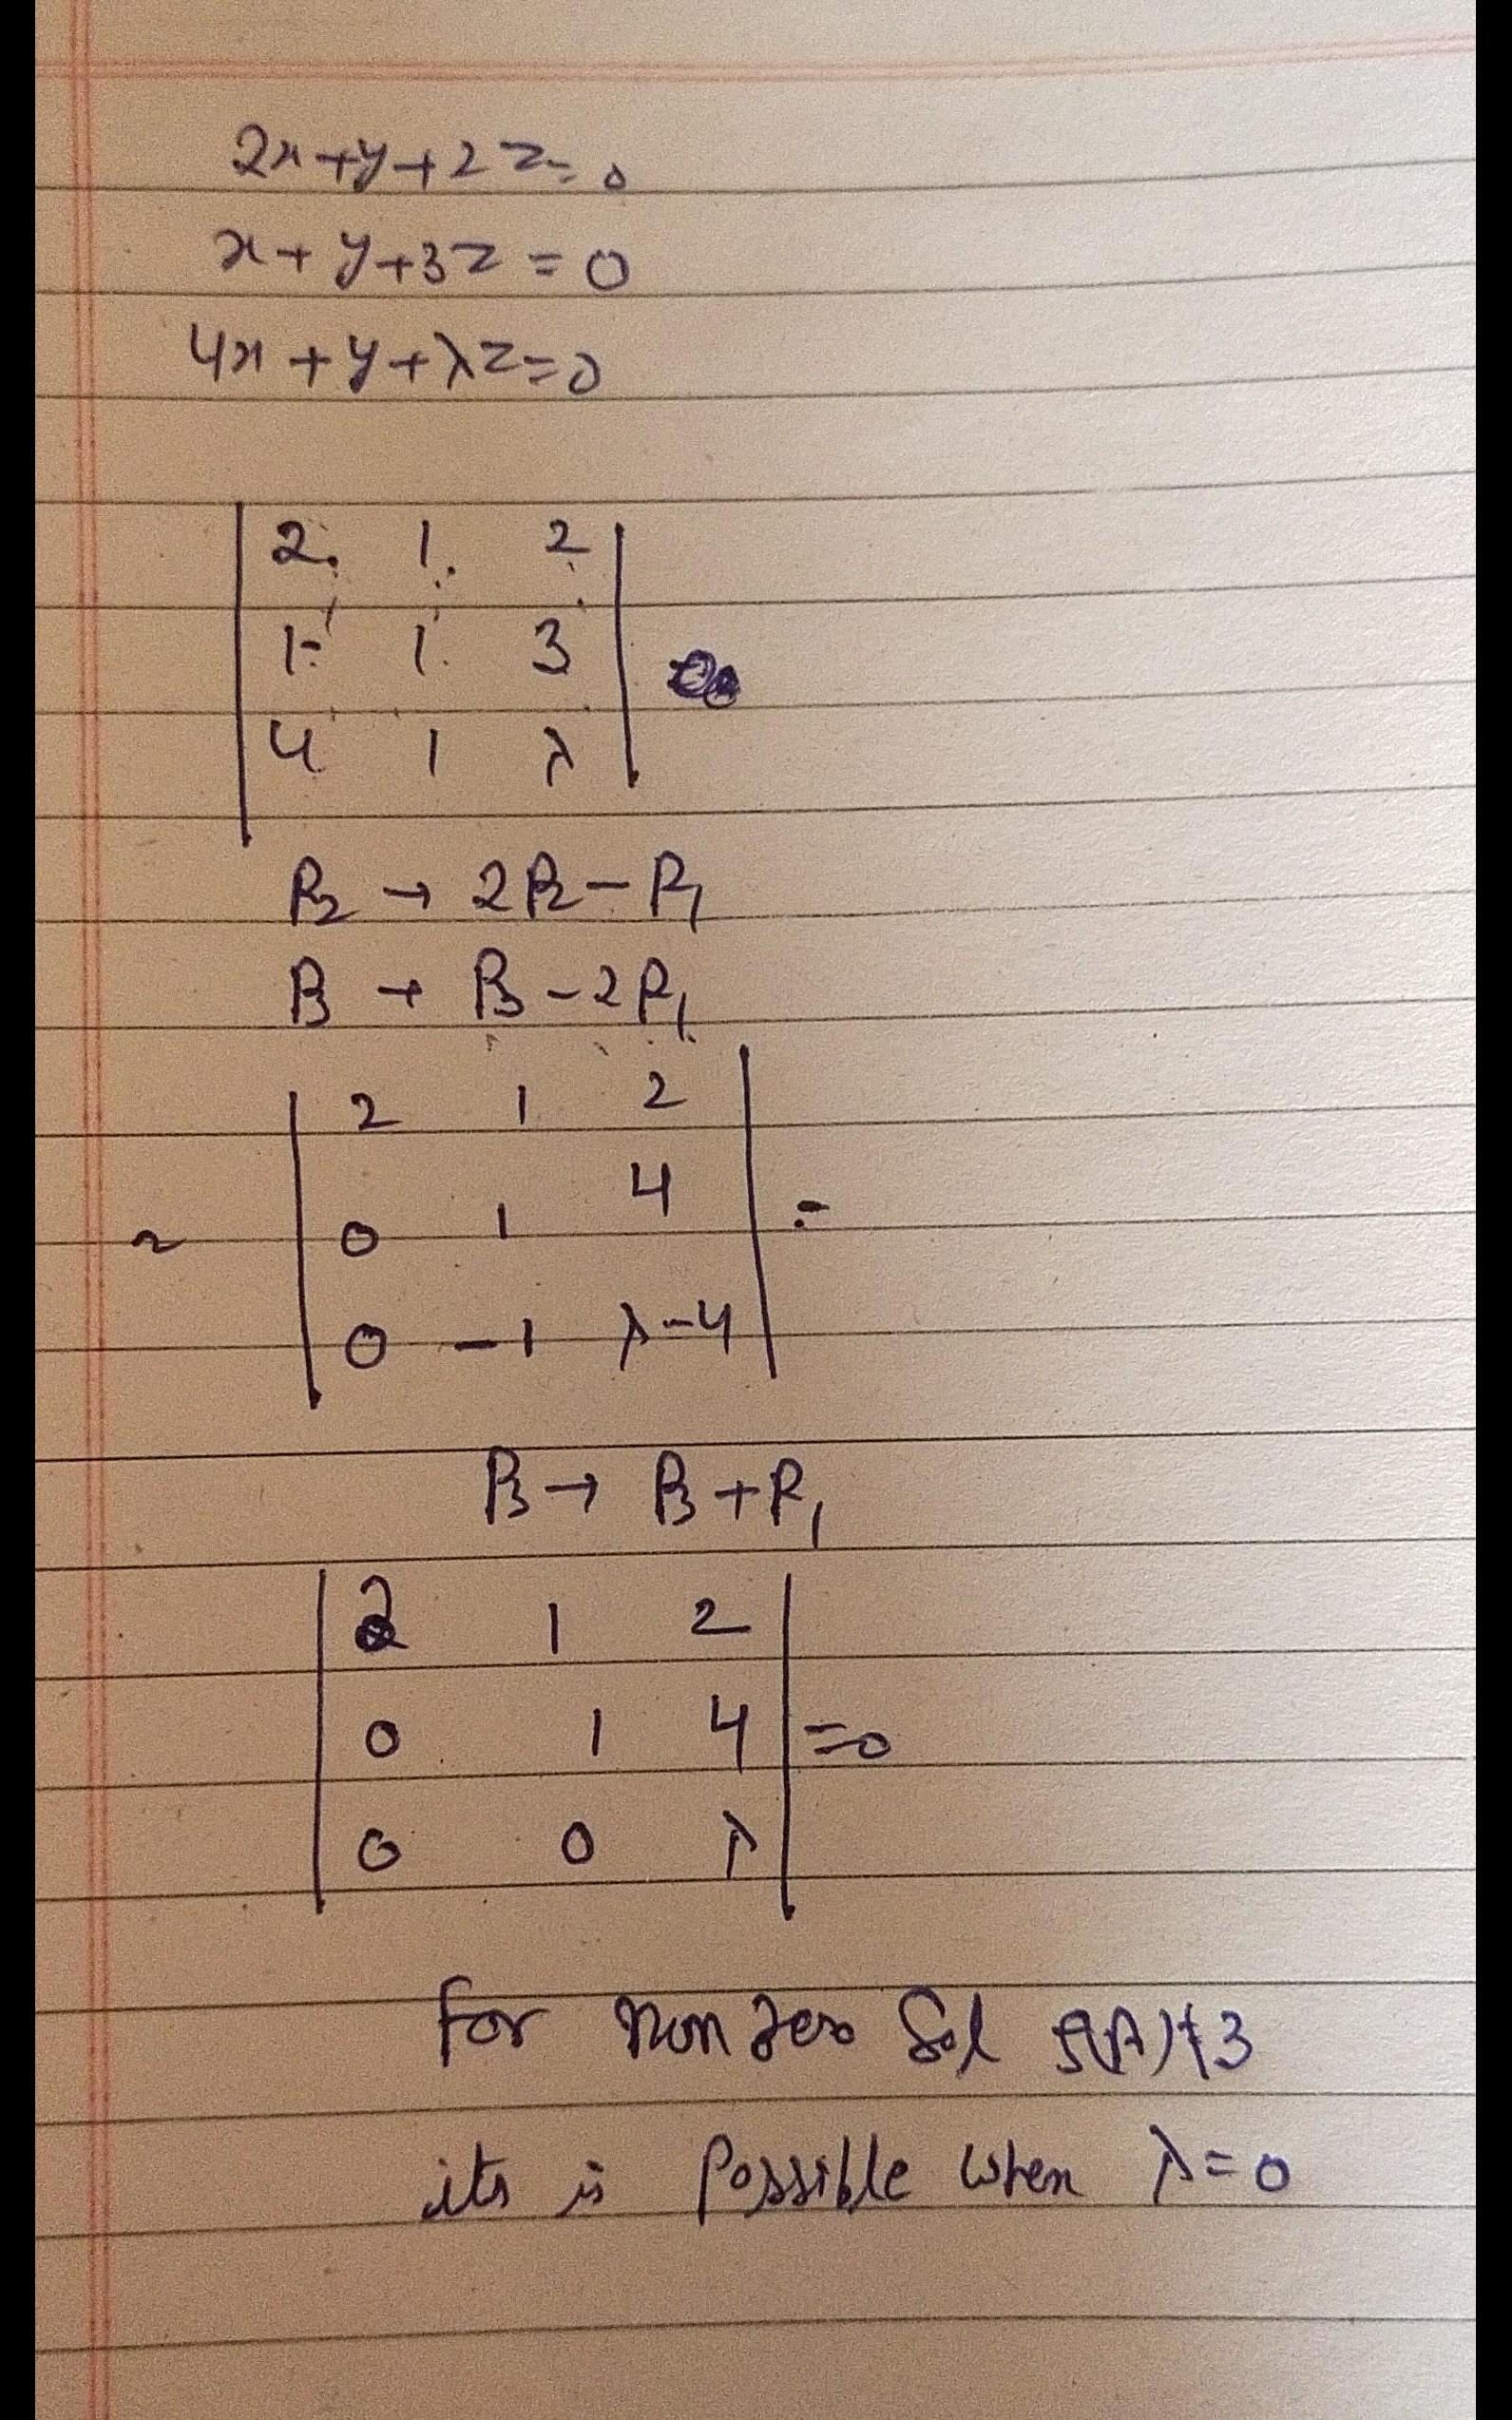 2x+y+2z=0
x+y+3z=0
4x+y+λz=0
2 1 2
1 1 3
4 1 λ
R2 → 2R2-R1
R3 → R3-2R1
~
2 1 2
0 1 4 =
0 -1 λ-4
R3 → R3+R1
2 1 2
0 1 4 =0
0 0 λ
for non zero Sol ρ(A)≠3
its is Possible when λ=0